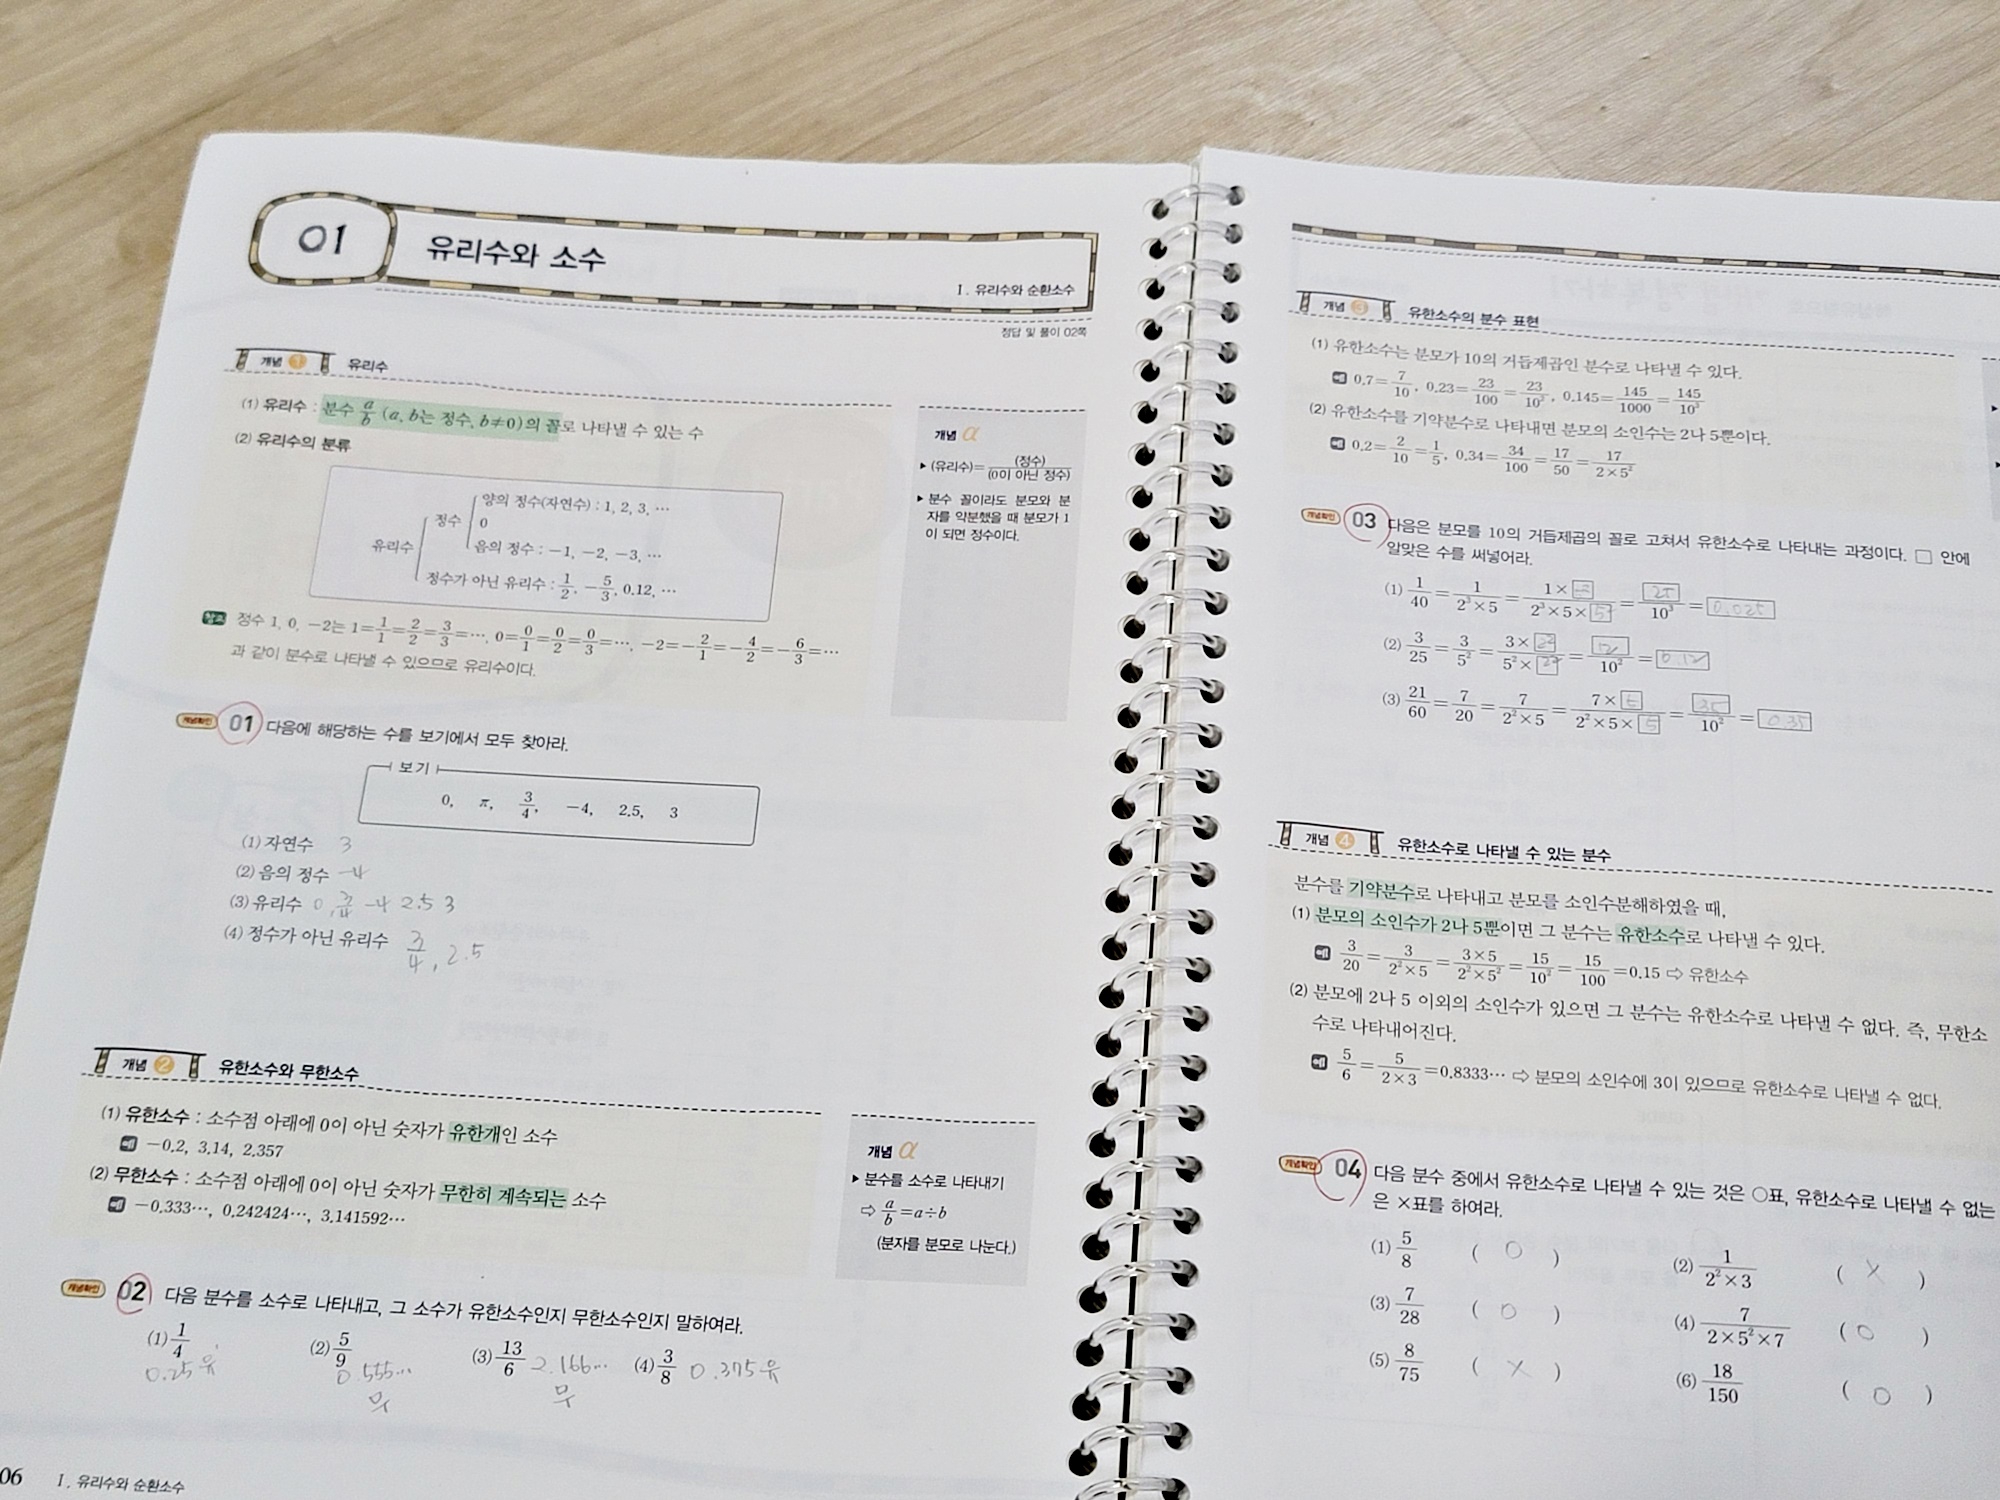 01 유리수와 소수
I. 유리수와 순환소수
정답 및 풀이 02쪽
개념 1 유리수
(1) 유리수 : 분수 a/b (a, b는 정수, b≠0)의 꼴로 나타낼 수 있는 수
(2) 유리수의 분류
유리수
정수
양의 정수(자연수) : 1, 2, 3, ⋯
0
음의 정수 : −1, −2, −3, ⋯
정수가 아닌 유리수 : 1/2, −5/3, 0.12, ⋯
참고 정수 1, 0, −2는 1=1/1=2/2=3/3=⋯, 0=0/1=0/2=0/3=⋯, −2=−2/1=−4/2=−6/3=⋯
과 같이 분수로 나타낼 수 있으므로 유리수이다.
개념 α
▸ (유리수)=(정수)/(0이 아닌 정수)
▸ 분수 꼴이라도 분모와 분
자를 약분했을 때 분모가 1
이 되면 정수이다.
개념확인 01 다음에 해당하는 수를 보기에서 모두 찾아라.
보기
0, π, 3/4, −4, 2.5, 3
(1) 자연수 3
(2) 음의 정수 −4
(3) 유리수 0, 3/4 −4 2.5 3
(4) 정수가 아닌 유리수 3/4, 2.5
개념 2 유한소수와 무한소수
(1) 유한소수 : 소수점 아래에 0이 아닌 숫자가 유한개인 소수
예 −0.2, 3.14, 2.357
(2) 무한소수 : 소수점 아래에 0이 아닌 숫자가 무한히 계속되는 소수
예 −0.333⋯, 0.242424⋯, 3.141592⋯
개념 α
▸ 분수를 소수로 나타내기
⇨ a/b=a÷b
(분자를 분모로 나눈다.)
개념확인 02 다음 분수를 소수로 나타내고, 그 소수가 유한소수인지 무한소수인지 말하여라.
(1) 1/4 (2) 5/9 (3) 13/6 2.166⋯ (4) 3/8 0.375 유
0.25 유 0.555⋯ 무
무
06 I. 유리수와 순환소수
개념 3 유한소수의 분수 표현
(1) 유한소수는 분모가 10의 거듭제곱인 분수로 나타낼 수 있다.
예 0.7=7/10, 0.23=23/100=23/10², 0.145=145/1000=145/10³
(2) 유한소수를 기약분수로 나타내면 분모의 소인수는 2나 5뿐이다.
예 0.2=2/10=1/5, 0.34=34/100=17/50=17/2×5²
개념확인 03 다음은 분모를 10의 거듭제곱의 꼴로 고쳐서 유한소수로 나타내는 과정이다. □ 안에
알맞은 수를 써넣어라.
(1) 1/40=1/2³×5=1×/2³×5×5²=25/10³=0.025
(2) 3/25=3/5²=3×2²/5²×2²=12/10²=0.12
(3) 21/60=7/20=7/2²×5=7×5/2²×5×5=35/10²=0.35
개념 4 유한소수로 나타낼 수 있는 분수
분수를 기약분수로 나타내고 분모를 소인수분해하였을 때,
(1) 분모의 소인수가 2나 5뿐이면 그 분수는 유한소수로 나타낼 수 있다.
예 3/20=3/2²×5=3×5/2²×5²=15/10²=15/100=0.15 ⇨ 유한소수
(2) 분모에 2나 5 이외의 소인수가 있으면 그 분수는 유한소수로 나타낼 수 없다. 즉, 무한소
수로 나타내어진다.
예 5/6=5/2×3=0.8333⋯ ⇨ 분모의 소인수에 3이 있으므로 유한소수로 나타낼 수 없다.
개념확인 04 다음 분수 중에서 유한소수로 나타낼 수 있는 것은 ○표, 유한소수로 나타낼 수 없는
은 ×표를 하여라.
(1) 5/8 ( ○ ) (2) 1/2²×3 ( × )
(3) 7/28 ( ○ ) (4) 7/2×5²×7 ( ○ )
(5) 8/75 ( × ) (6) 18/150 ( ○ )